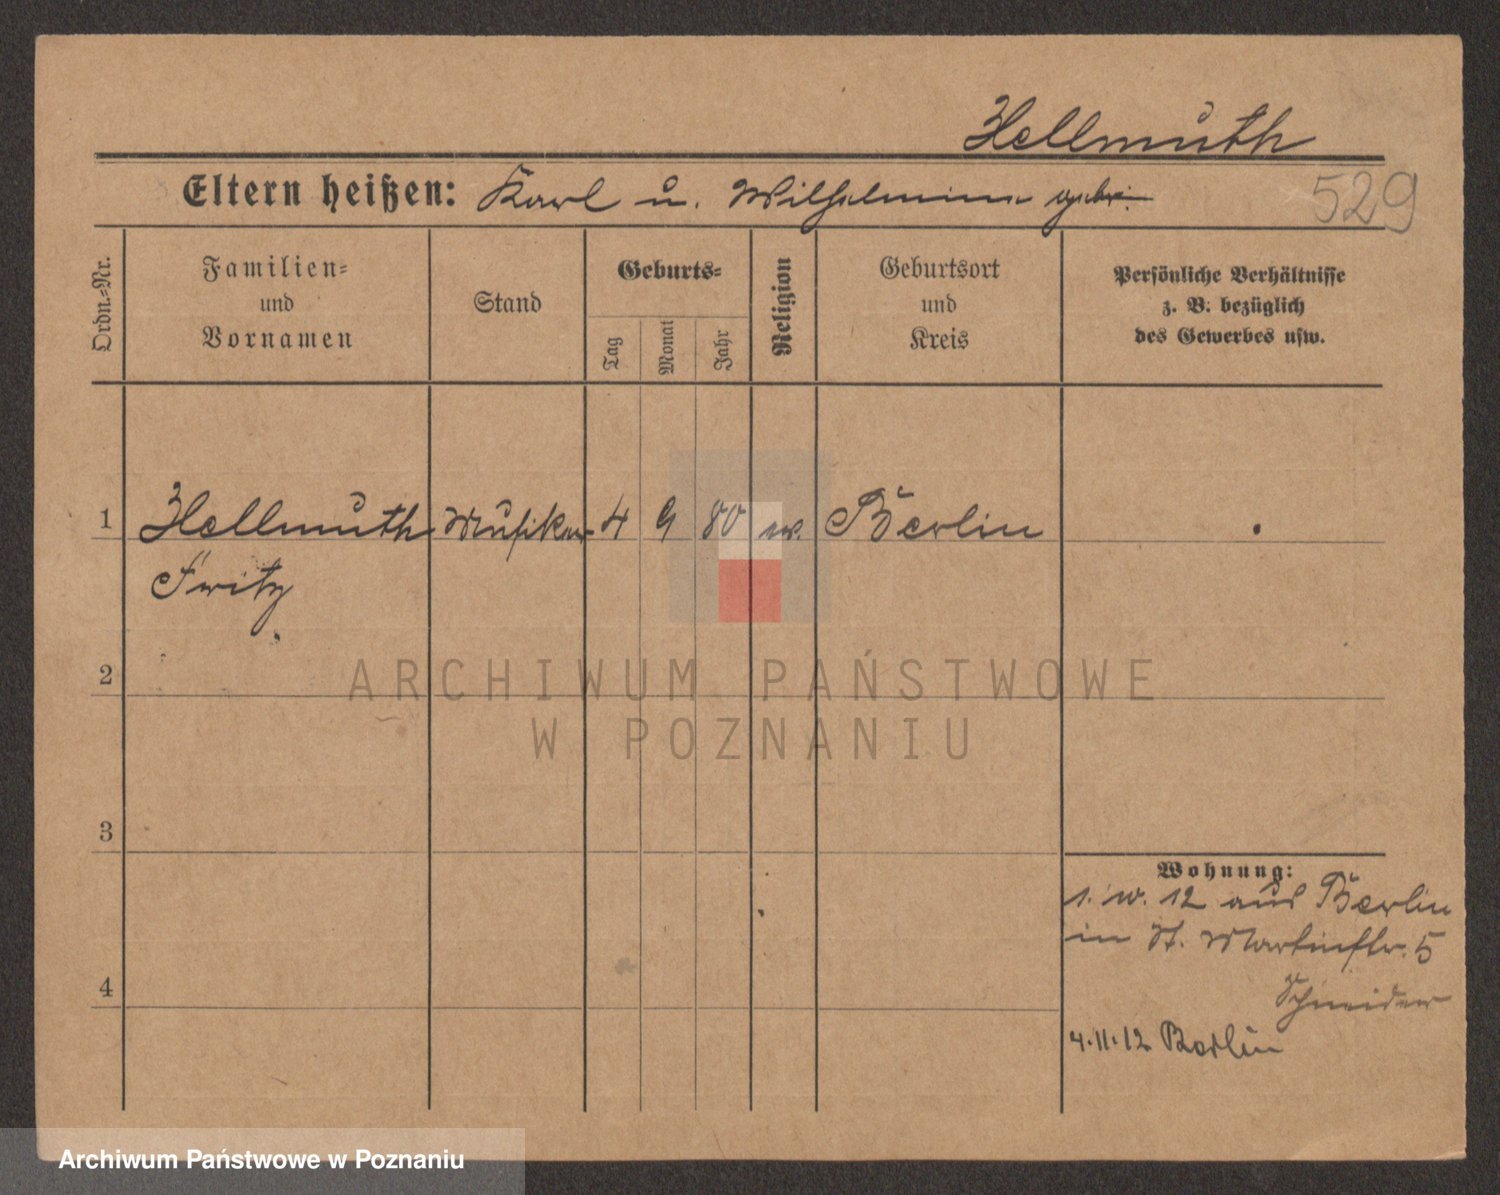 Hellmuth
Eltern heißen: Karl u. Wilhelmine
529
Ordn.=Nr.
Familien=
und
Vornamen
Stand
Geburts=
Tag
Monat
Jahr
Religion
Geburtsort
und
Kreis
Persönliche Verhältnisse
z. B. bezüglich
des Gewerbes usw.
1 Hellmuth Musiker 4 9 80 ev. Berlin
Fritz
2
3
4
Wohnung:
12 aus Berlin
in St. Martinstr. 5
Schneider
4.11.12 Berlin
ARCHIWUM PAŃSTWOWE
W POZNANIU
Archiwum Państwowe w Poznaniu